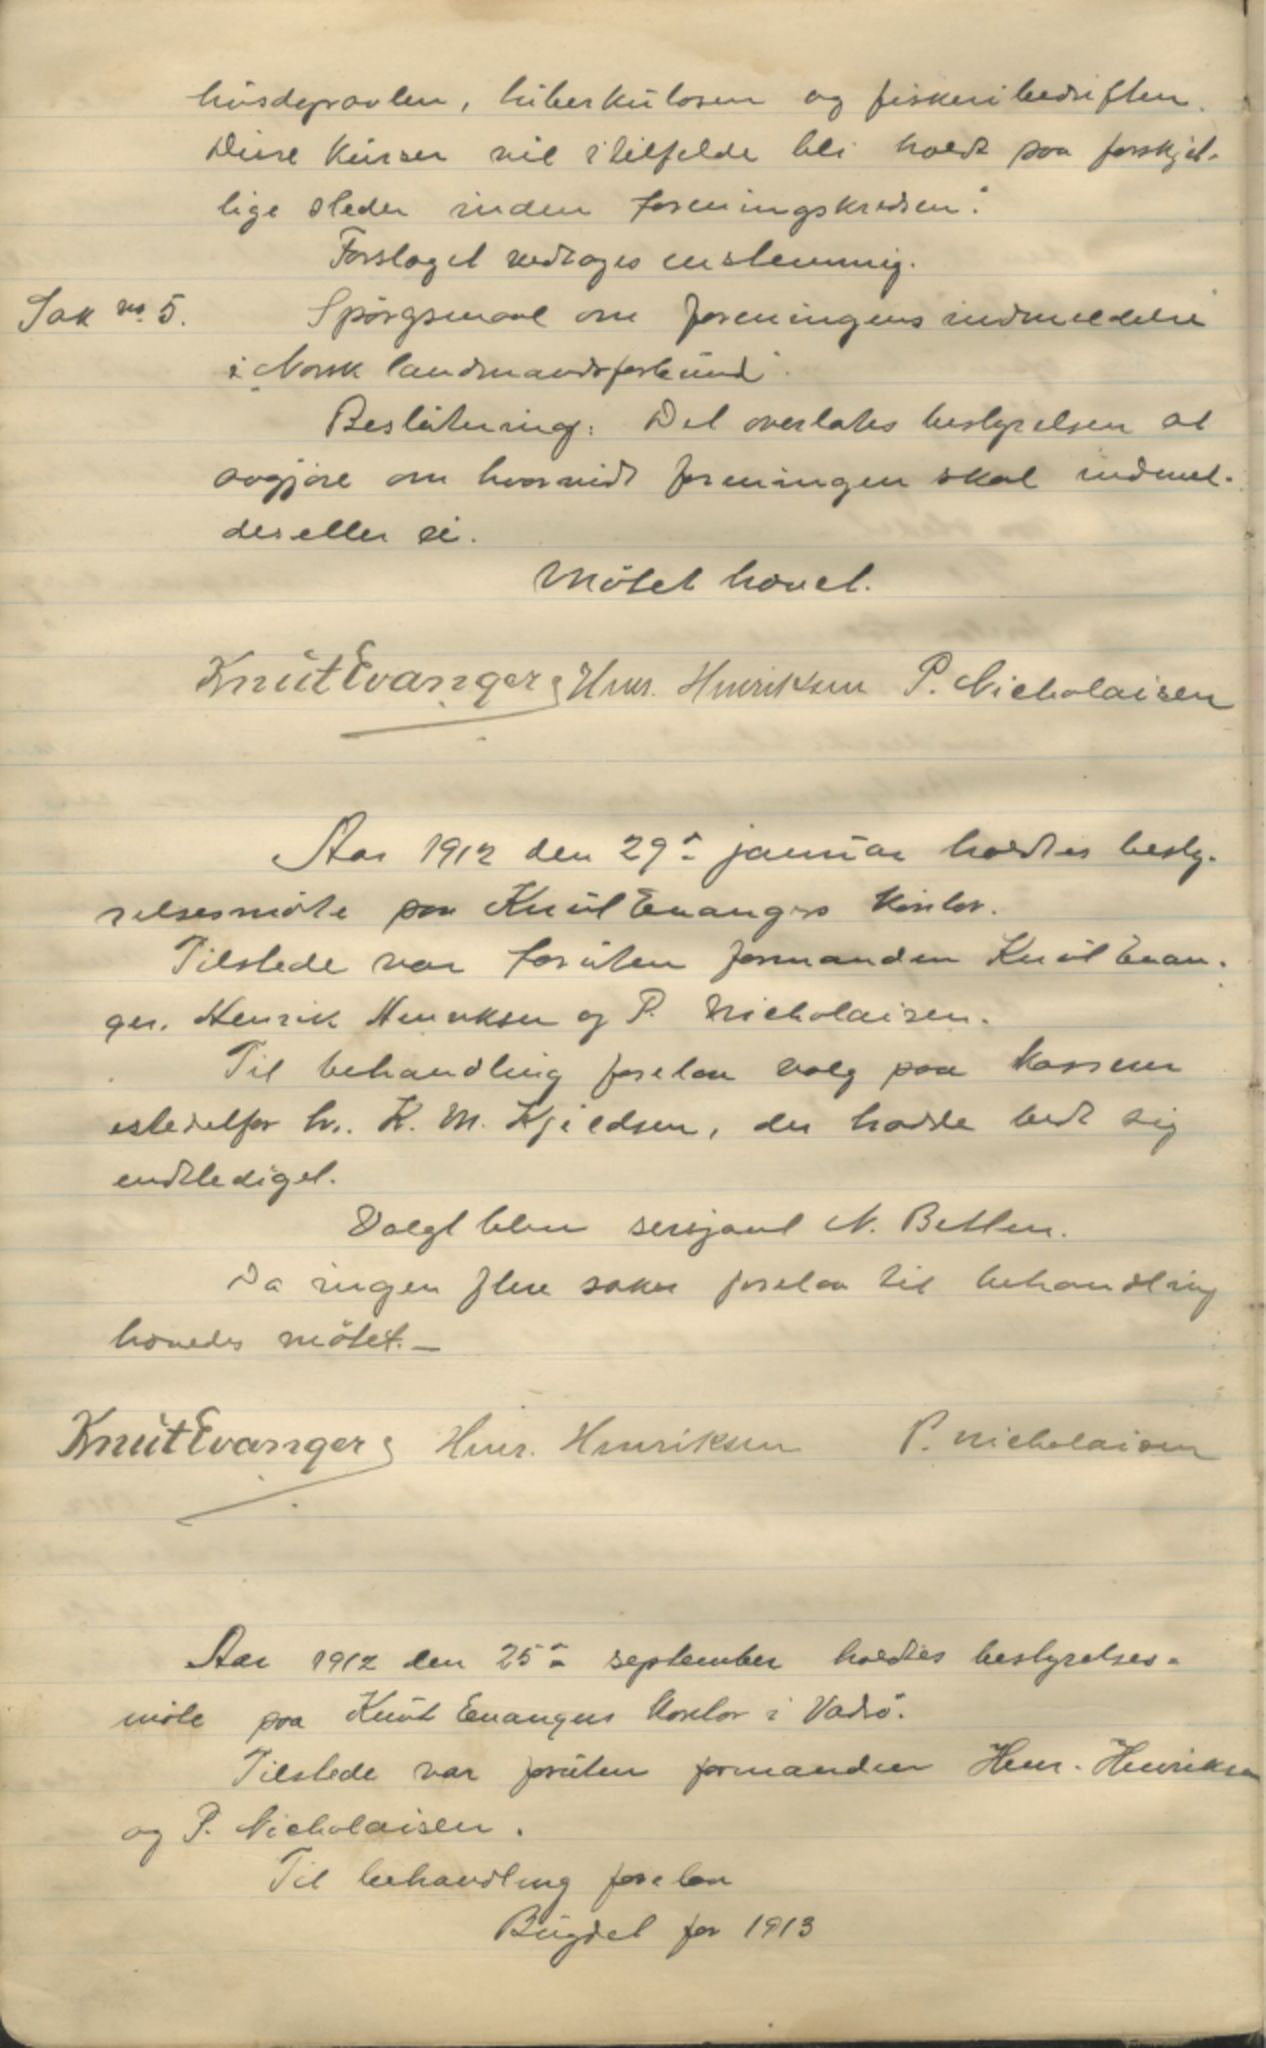 husdyravlen, tuberkulosen og fiskeribedriften.
Disse kurser vil i tilfelde bli holdt paa forskjel-
lige steder inden foreningskredsen."
Forslaget vedtoges enstemmig.
Sak no. 5. Spørgsmaal om foreningens indmeldelse
i "Norsk landmandsforbund".
Beslutning: Det overlates bestyrelsen at
avgjøre om hvorvidt foreningen skal indmel-
des eller ei.
Møtet hævet.
Knut Evanger Henr. Henriksen P. Nicholaisen
Aar 1912 den 29de januar holdtes besty-
relsesmøte paa Knut Evangers kontor.
Tilstede var foruten formanden Knut Evan-
ger, Henrik Henriksen og P. Nicholaisen.
Til behandling forelaa valg paa kasserer
istedetfor hr. K. M. Kjeldsen, der hadde bedt sig
endtlediget.
Valgt blev sersjant N. Betten.
Da ingen flere saker forelaa til behandling
hævedes møtet. —
Knut Evanger Henr. Henriksen P. Nicholaisen
Aar 1912 den 25de september holdtes bestyrelses-
møte paa Knut Evangers kontor i Vadsø.
Tilstede var foruten formanden Henr. Henriksen
og P. Nicholaisen.
Til behandling forelaa
Bugdet for 1913